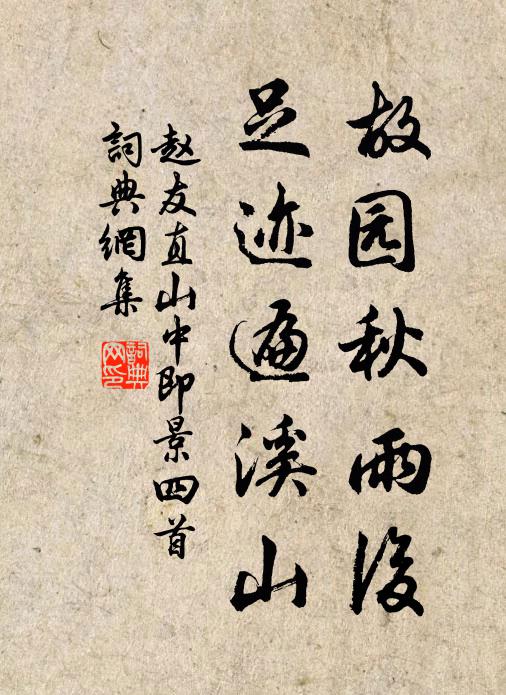 故园秋雨後
足迹遍溪山
赵友直山中即景四首
詞典網集
詞典网印